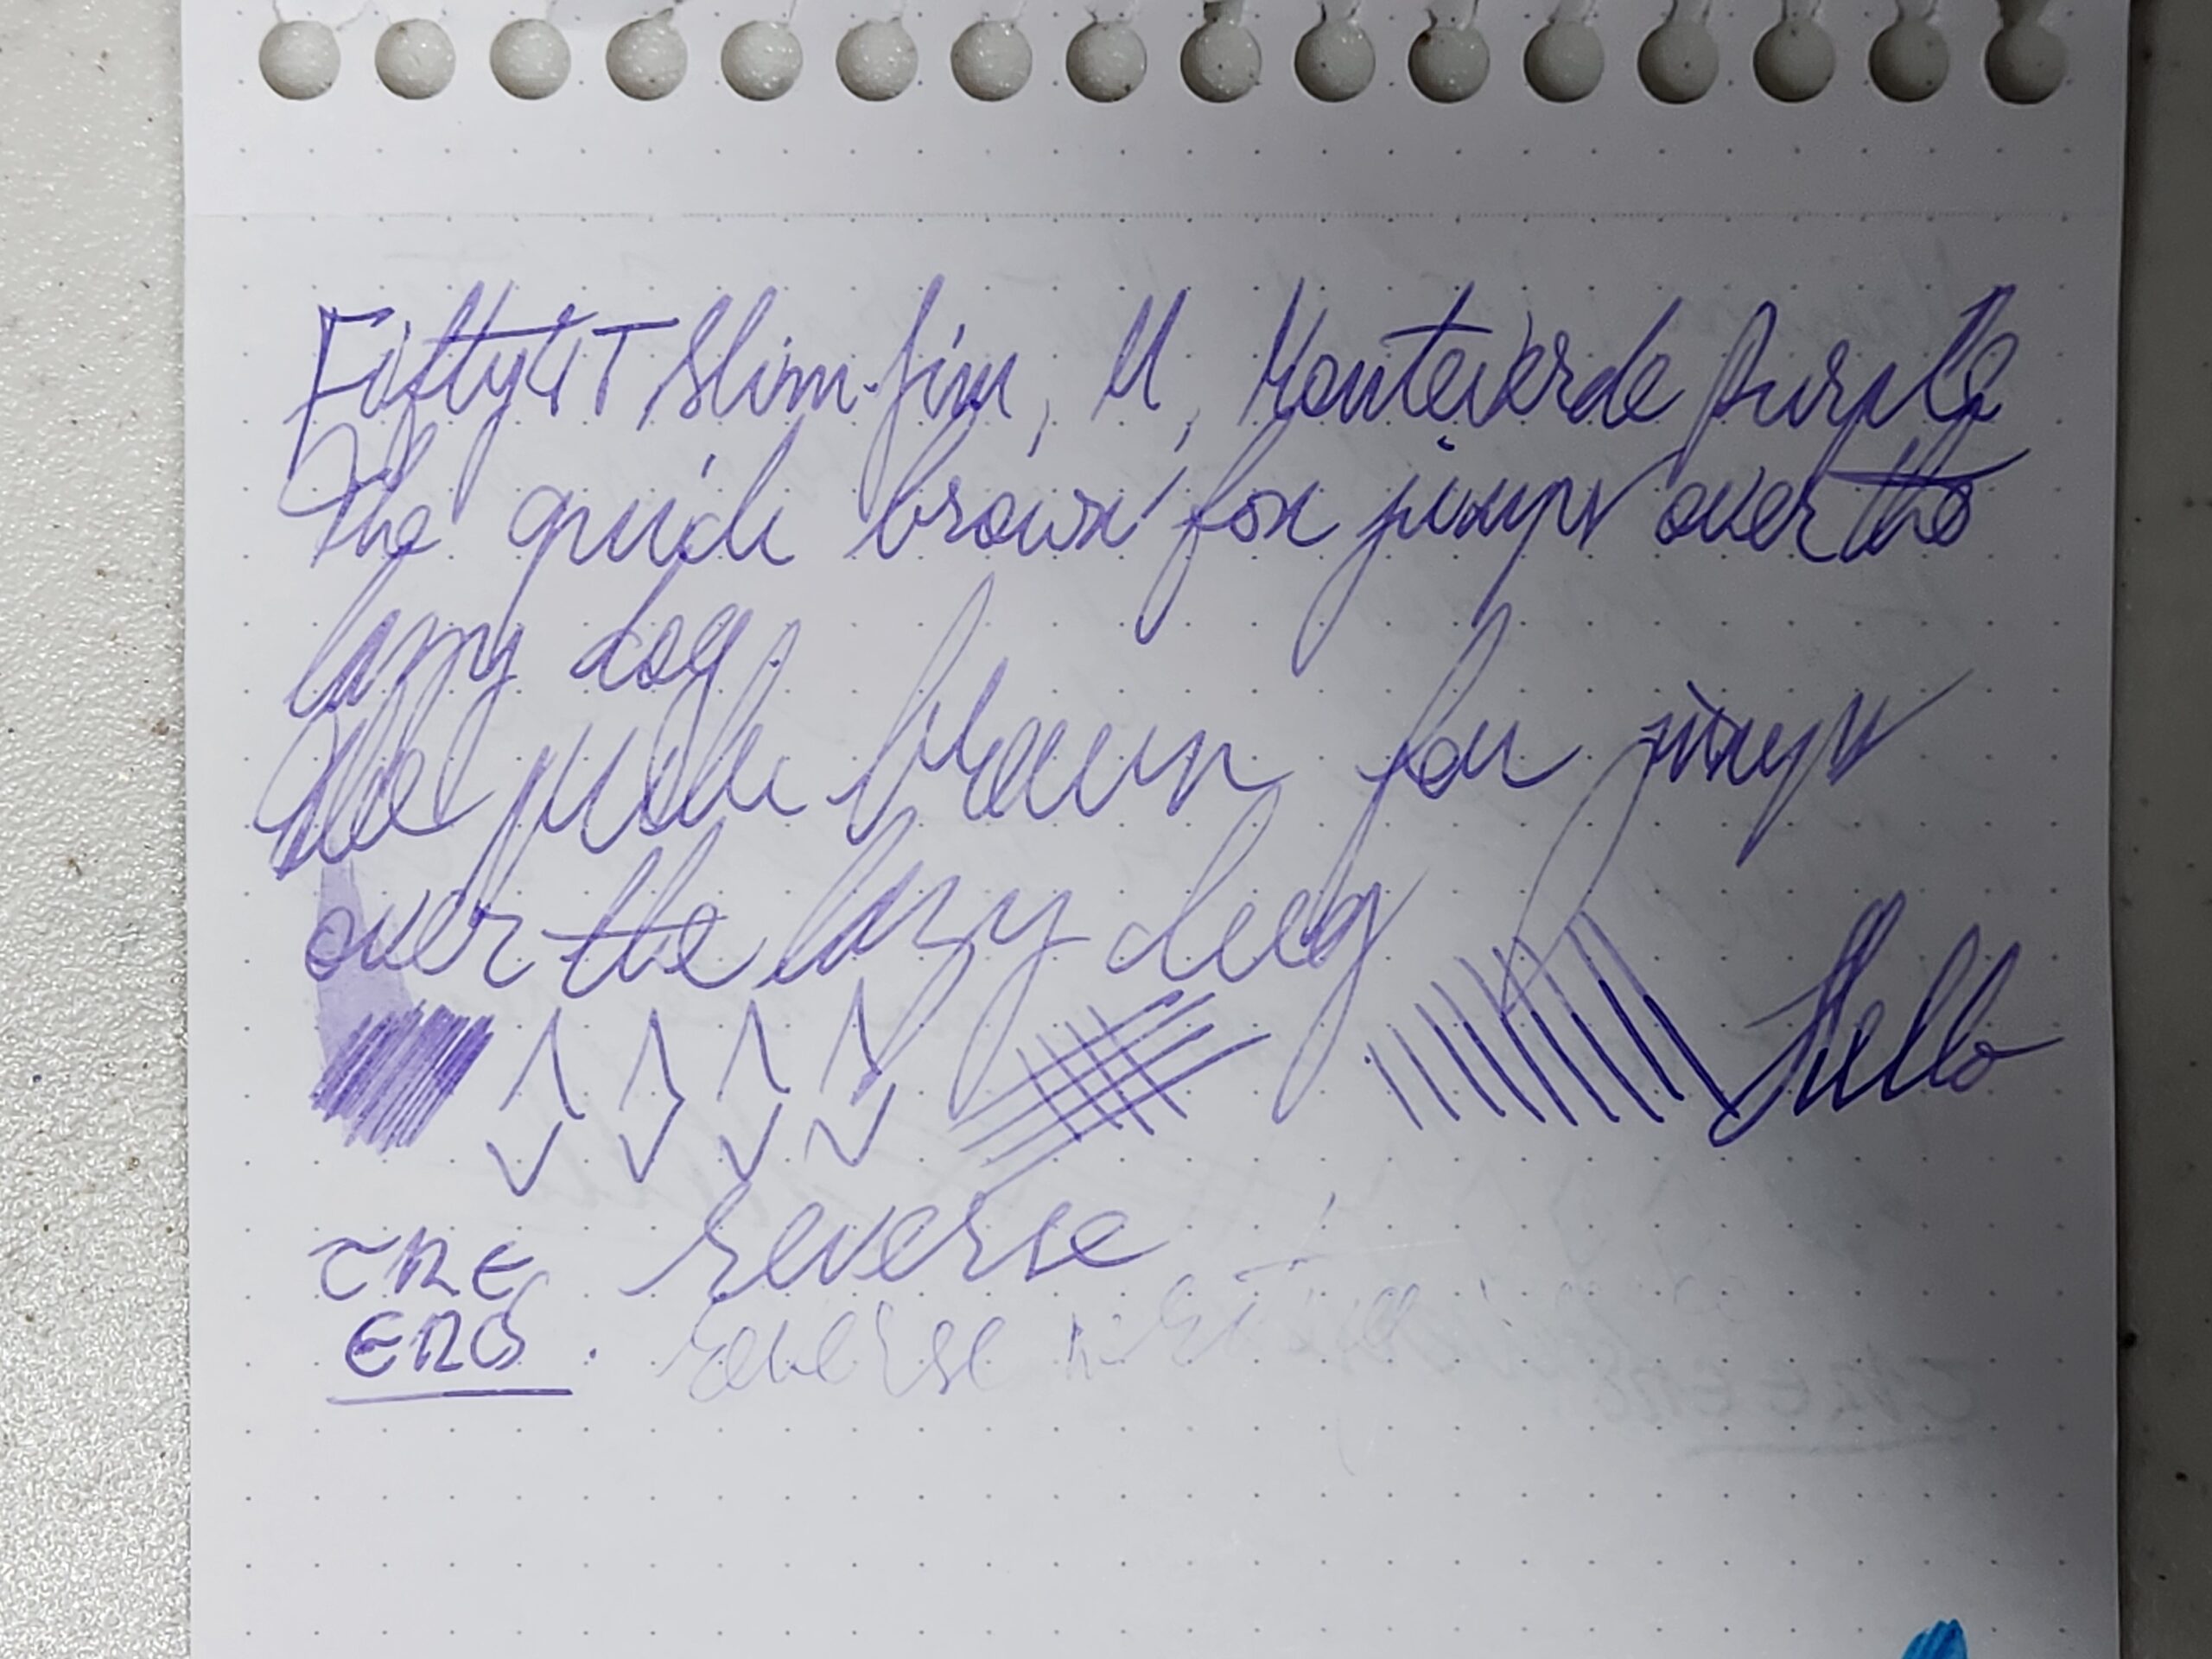 Fifty4T Slim-jim, M, Monteverde Purple
The quick brown fox jumps over the
lazy dog
The quick brown fox jumps
over the lazy dog
Hello
THE reverse
END. reverse writing